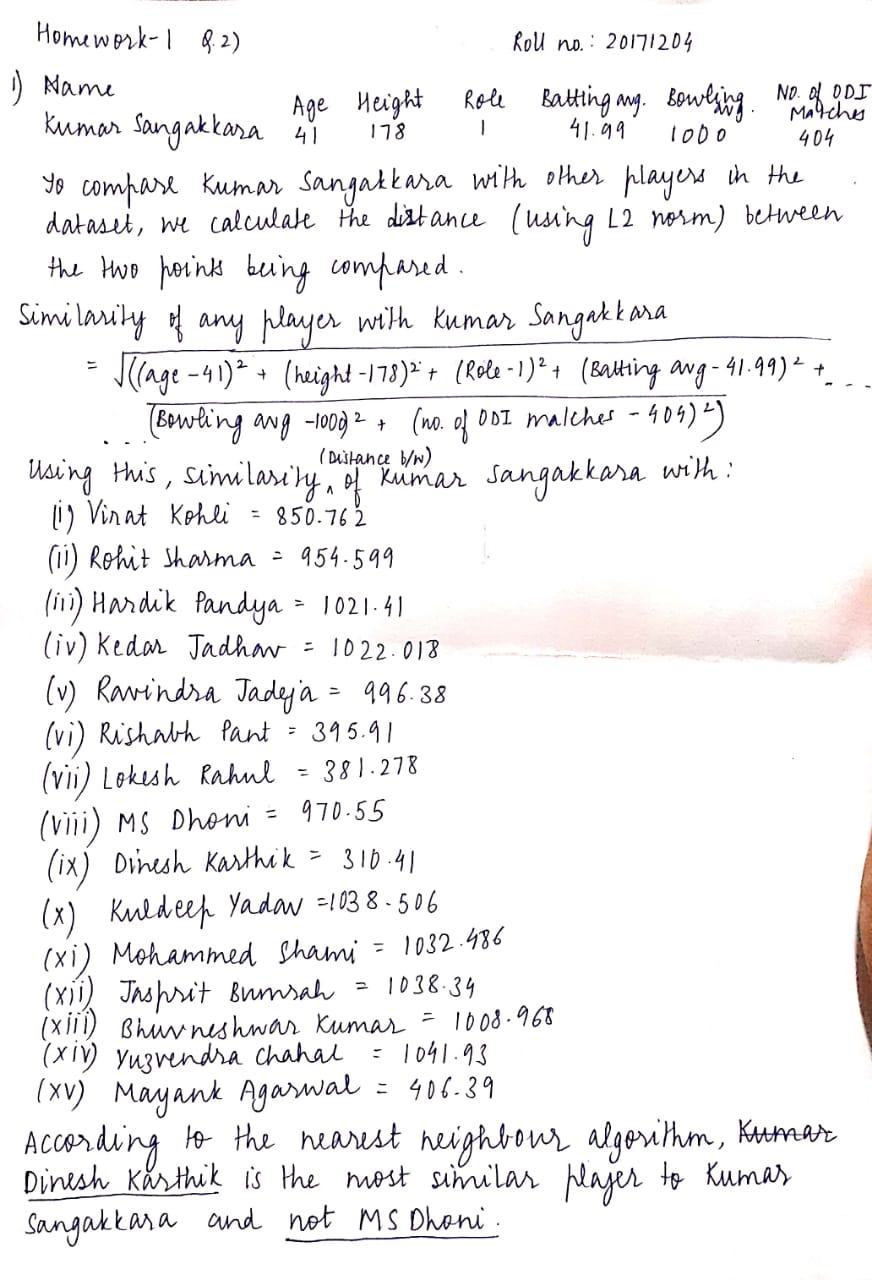 Homework-1 Q.2) Roll no.: 20171204
1) Name Age Height Role Batting avg. Bowling avg. No. of ODI Matches
Kumar Sangakkara 41 178 1 41.99 1000 404
To compare Kumar Sangakkara with other players in the
dataset, we calculate the distance (using L2 norm) between
the two points being compared.
Similarity of any player with Kumar Sangakkara
= √((age-41)² + (height-178)² + (Role-1)² + (Batting avg-41.99)² + ...
... (Bowling avg -1000)² + (no. of ODI matches - 404)²)
Using this, similarity (Distance b/w) of Kumar Sangakkara with:
(i) Virat Kohli = 850.762
(ii) Rohit Sharma = 954.599
(iii) Hardik Pandya = 1021.41
(iv) Kedar Jadhav = 1022.018
(v) Ravindra Jadeja = 996.38
(vi) Rishabh Pant = 395.91
(vii) Lokesh Rahul = 381.278
(viii) MS Dhoni = 970.55
(ix) Dinesh Karthik = 310.41
(x) Kuldeep Yadav =1038.506
(xi) Mohammed Shami = 1032.486
(xii) Jasprit Bumrah = 1038.34
(xiii) Bhuvneshwar Kumar = 1008.968
(xiv) Yuzvendra Chahal = 1041.93
(xv) Mayank Agarwal = 406.39
According to the nearest neighbour algorithm, Kumar
Dinesh Karthik is the most similar player to Kumar
Sangakkara and not MS Dhoni.